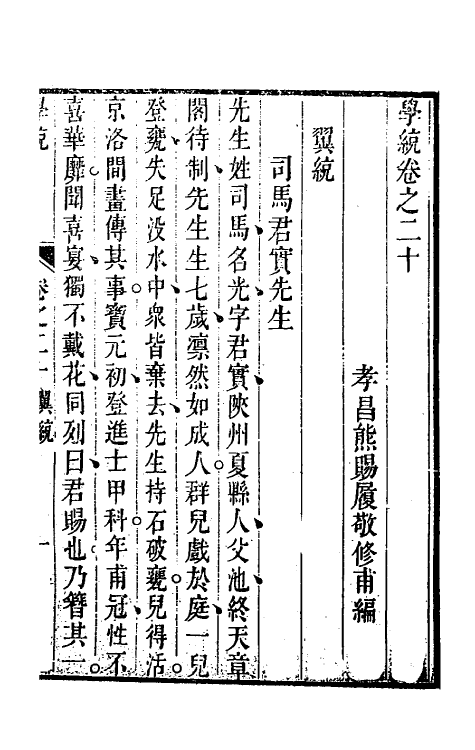 學統卷之二十
孝昌熊賜履敬修甫編
翼統
司馬君實先生
先生姓司馬名光字君實陝州夏縣人父池終天章
閣待制先生生七歲凛然如成人群兒戲於庭一兒
登甕失足没水中衆皆棄去先生持石破甕兒得活
京洛間畫傳其事寶元初登進士甲科年甫冠性不
喜華靡聞喜宴獨不戴花同列曰君賜也乃簪其一
學統 卷之二十 翼統 一